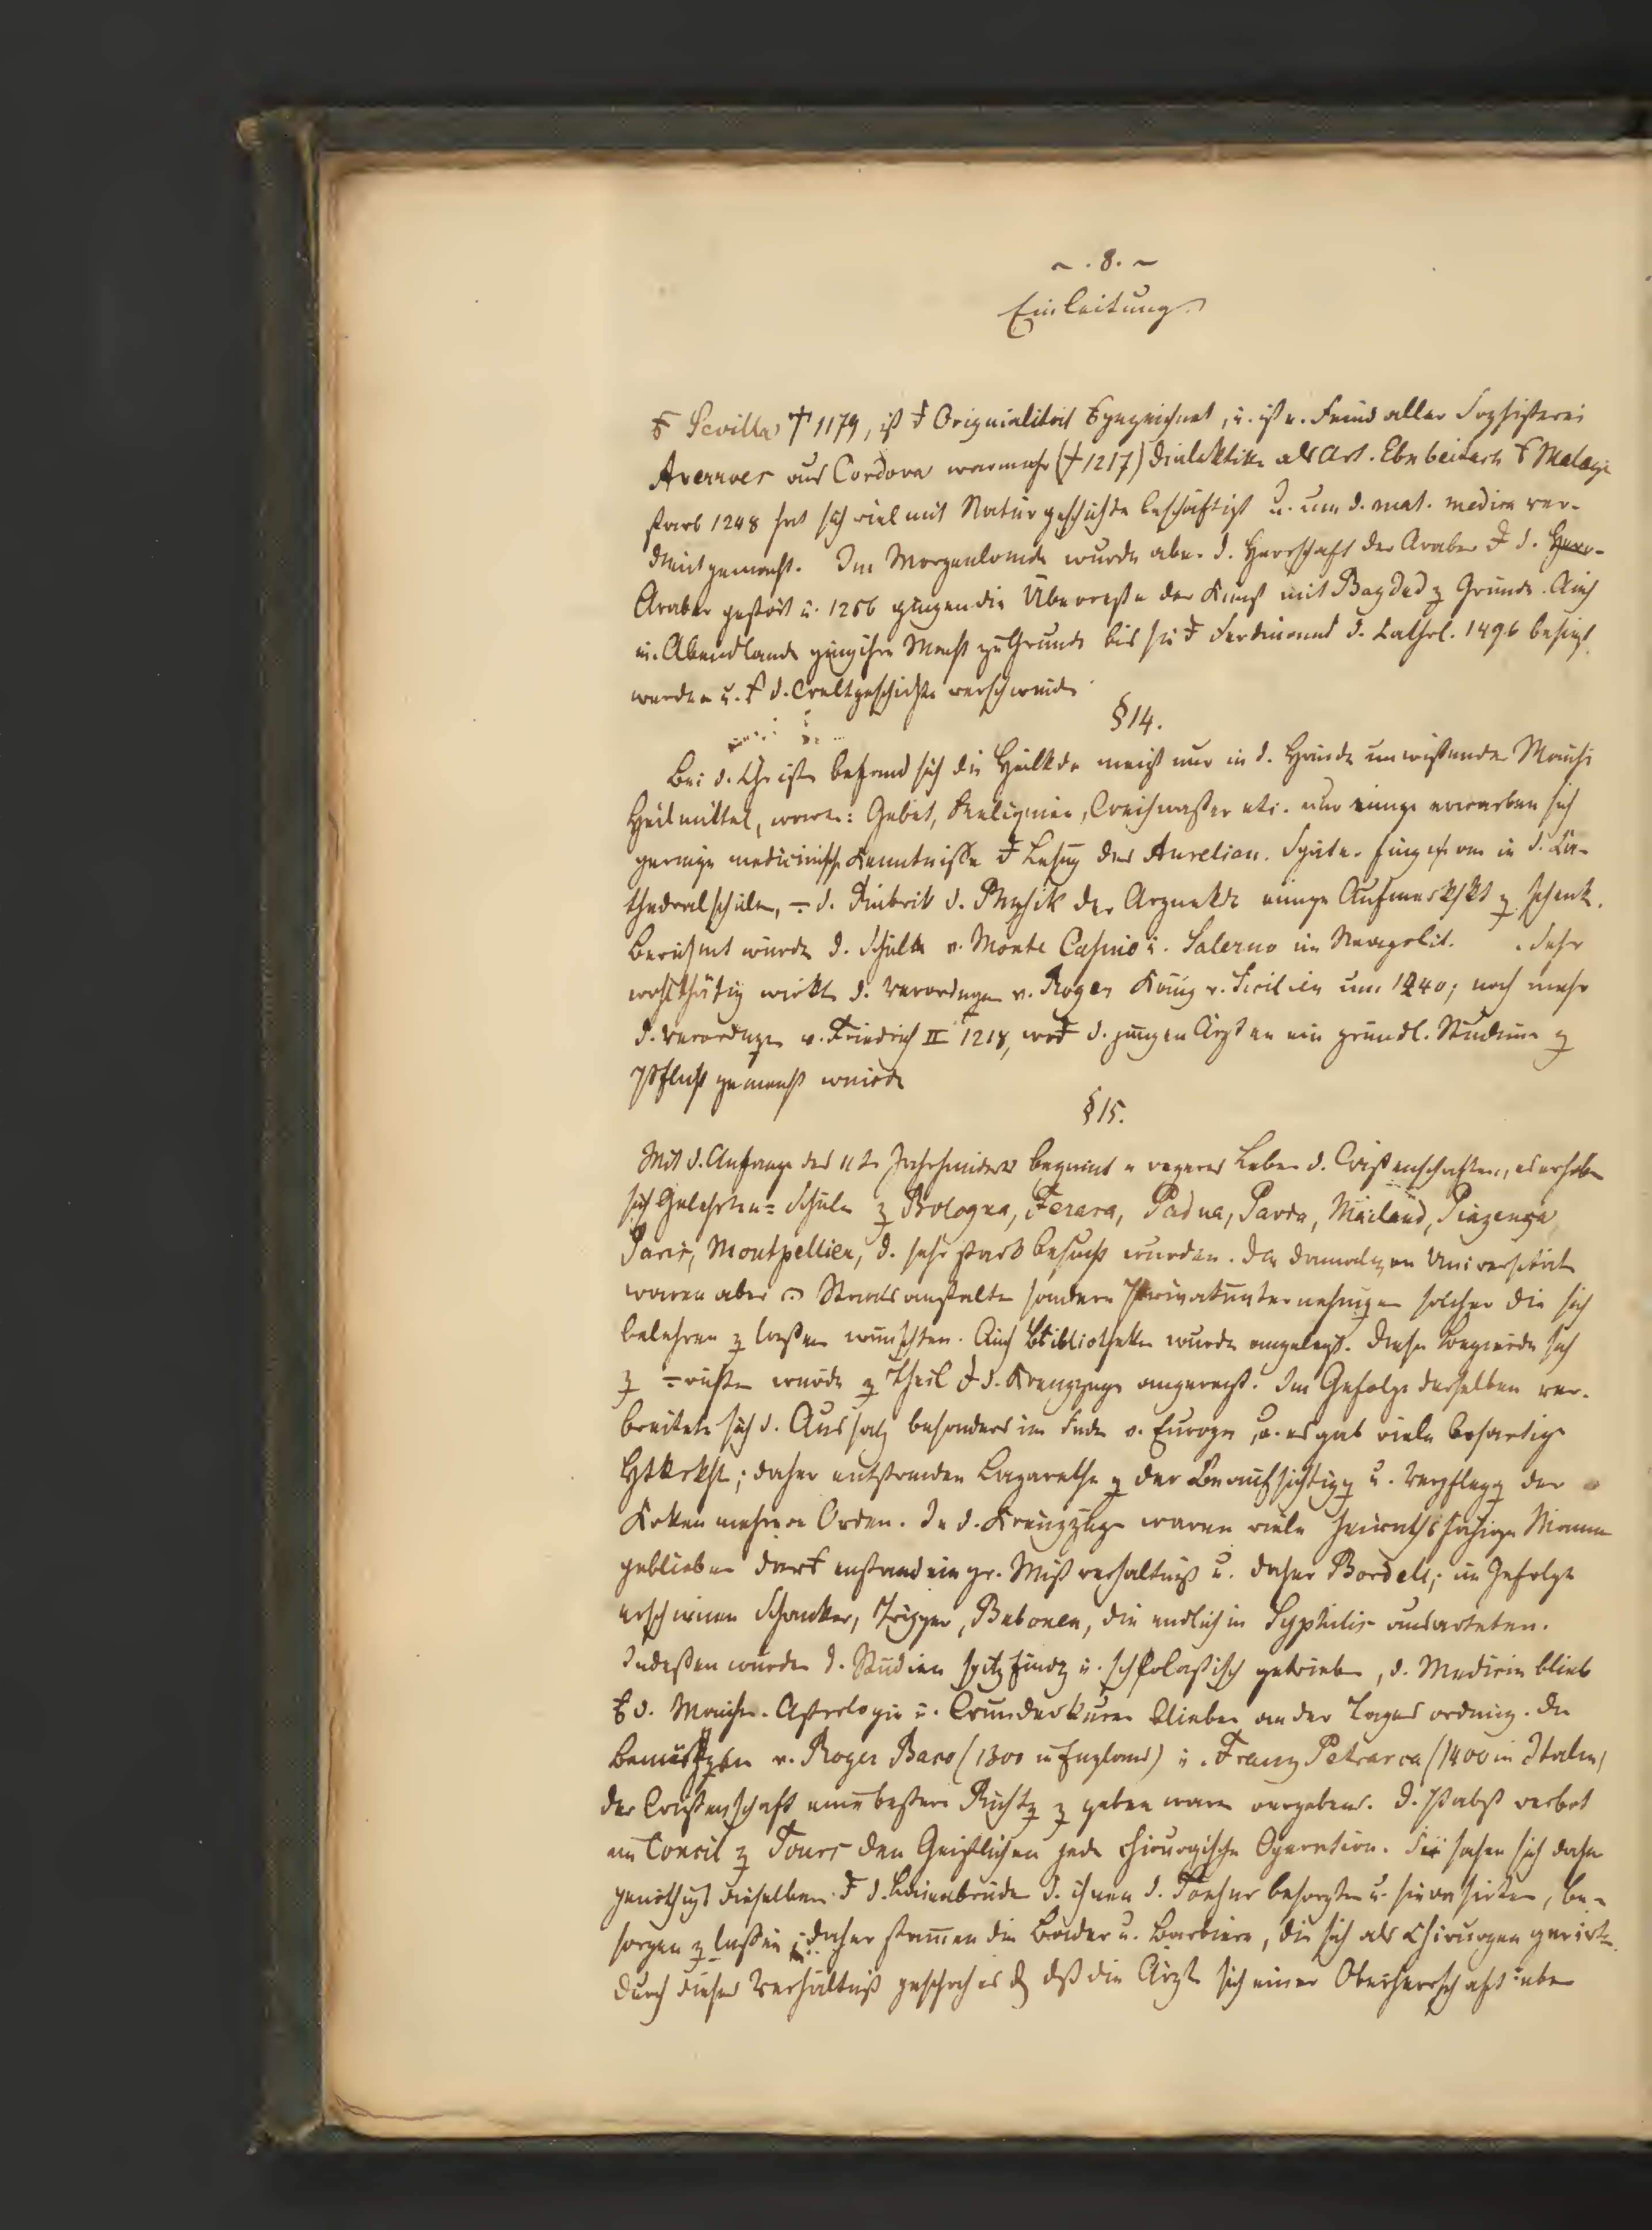 ~ . 8. ~
Einleitung
Sevilla † 1179, ist Originialität ausgezeichnet, u. ist e. Feind aller Sophisterei
Averroes aus Cordova war mehr († 1217) Dialektike als Arzt. Ebn beitar Malaga
starb 1248 hat sich viel mit Naturgeschichte beschäftigt u. um d. mat. medica ver-
dient gemacht. Im Morgenlande wurde aber d. Herrschaft der Araber d.
Araber gestört u. 1256 gingen die Überreste der Kunst mit Bagdad z Grunde. Auch
in Abendlande ging ihre Macht zu Grunde bis sie Ferdinand d. Kathol. 1496 besiegt
wurden u. d. Weltgeschichte verschwinde
§ 14.
Bei d. Christen befand sich die Heilkde meist nur in d. Hände unwißende Mönche
Heilmittel, waren: Gebet, Reliquien, Weihwaßer etc. nur einige erwarben sich
geringe medicinische Kenntniße Lesung des Aurelian. Später fing man in d. Ka-
thedralschulen, d. Rubrik d. Physik der Arzneikde einige Aufmerkskt z schenk.
Berühmt wurde d. Schule v. Monte Cassino u. Salerno im Neapolit. Sehr
wohlthätig wirkte d. Verordnungen v. Roger König v. Sicilien um 1240; noch mehr
d. Verordnugen v. Friedrich II 1218, d. jungen Ärzten ein gründl. Studium z
Pflicht gemacht wurde
§ 15.
Mit d. Anfange des 11ten Jahrhunderts beginnt e regeres Leben d. Wißenschaften, es erhoben
sich Gelehrten= Schulen z Bologna, Ferara, Padua, Pavia, Mailand, Piazenza,
Paris, Montpellier, d. sehr stark besucht wurden. Die damaligen Universitäten
waren aber Staatsanstalten sondern Privatunternehmungen solcher die sich
belehren z laßen wünschten. Auch Bibliotheken wurde angelegt. Diese Begierde sich
z wurde z Theil d. Kreuzzüge angeregt. Im Gefolge derselben ver-
breitete sich d. Aussatz besonders im Süden v. Europa, u. es gab viele bösartige
Htkrkht; daher entstanden Lazarethe z der Beaufsichtigg u. Verpflegg der
Krken mehrere Orden. In d. Kreuzzüge waren viele heirathsfähige Männer
geblieben entstand ein gr. Mißverhältniß u. daher Bordels; im Gefolge
erschienen Schanker, Tripper, Bubonen, die endlich in Syphilis ausarteten.
Indeßen wurden d. Studien spitzfindg u. scholastisch getrieben, d. Medicin blieb
d. Mönche. Astrologie u. Wunderkuren blieben an der Tagesordnung. Die
Bemühungen v. Roger Baco (1300 in England) u. Franz Petrarca (1400 in Italien)
der Wißenschaft eine beßere Richtg z geben waren vergebens. D. Pabst verbot
im Concil z Tours den Geistlichen jede chirurgische Operation. Sie sahen sich daher
genöthigt dieselben d. Laienbrüder d. ihnen d. besorgten u. sie rasirten, be-
sorgen z laßen; daher stammen die Bader u. Barbiere, die sich als Chirurgen gerirte.
Durch dieses Verhältniß geschah es daß die Ärzte sich einer Oberherrschaft über